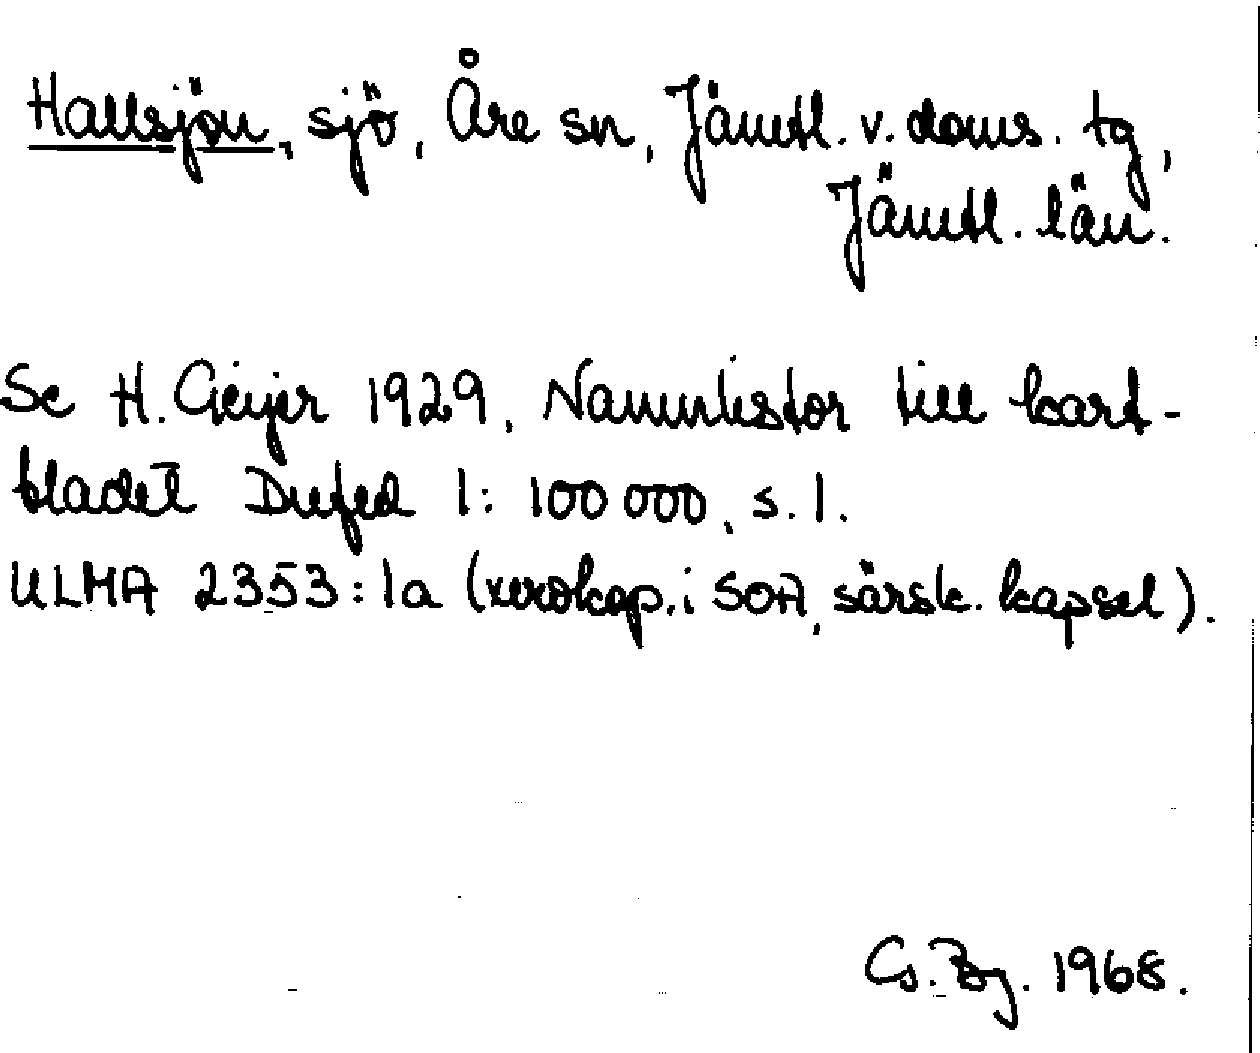 Hallsjön, sjö, Åre sn, Jämtl. v. doms. tg,
Jämtl. län.
Se H. Geijer 1929, Namnlistor till kart-
bladet Dufed 1:100 000, s. 1.
ULMA 2353:1a (xerokop. i SOA, särsk. kapsel).
G. Bg. 1968.